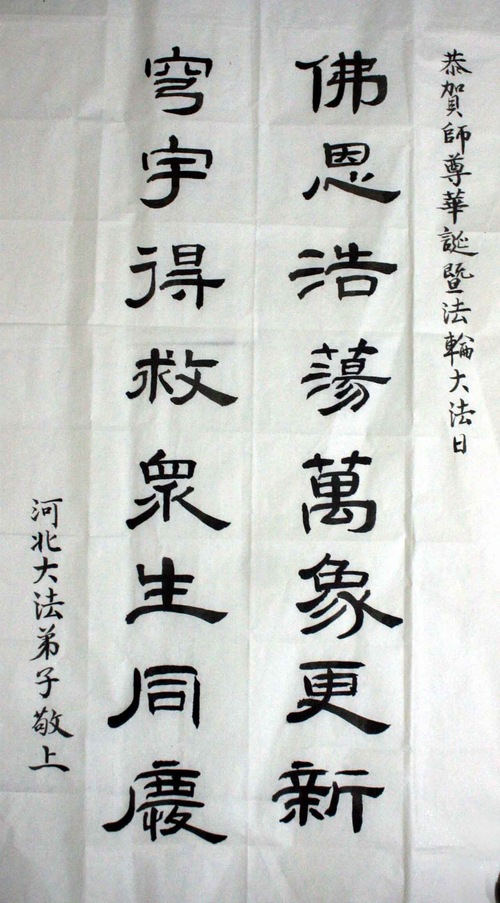 恭賀師尊華誕暨法輪大法日
佛恩浩蕩萬象更新
穹宇得救眾生同慶
河北大法弟子敬上